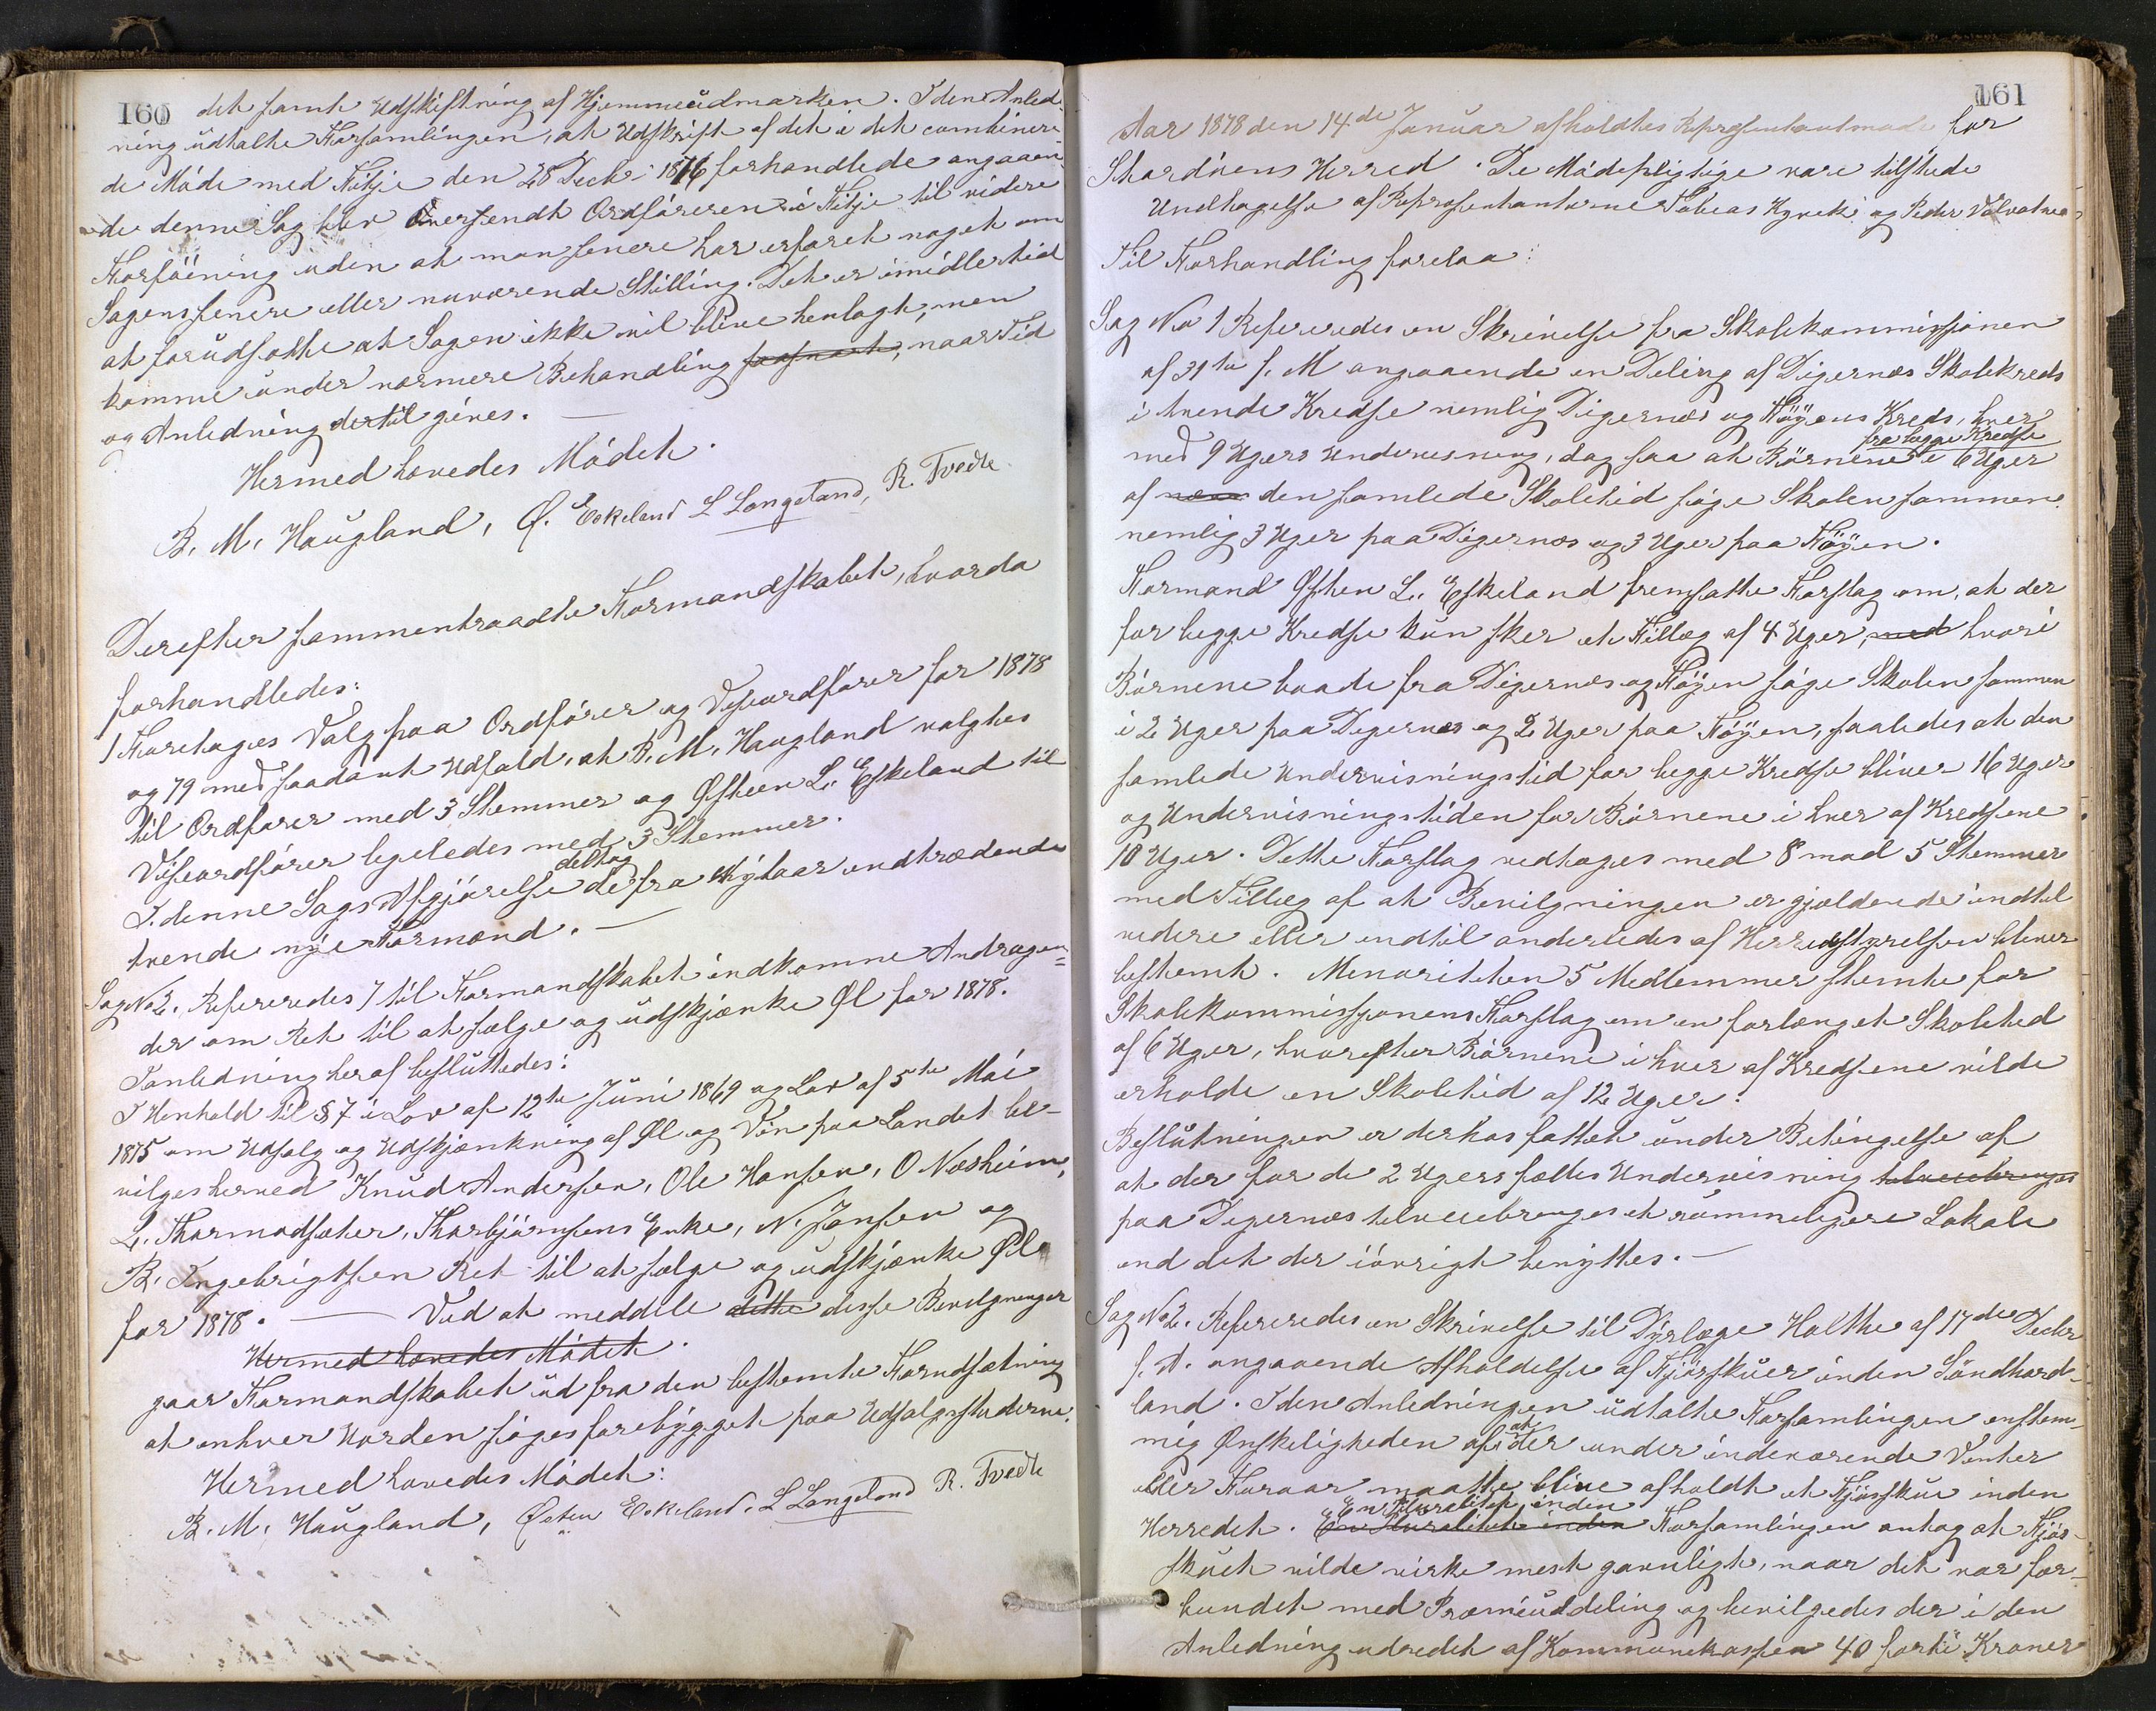 160
det samt Udskiftning af Hjemmeudmarken. I den Anled-
ning udtalte Forsamlingen, at Udskrift af det i det combinere-
de Møde med Fitje den 28 Decb. 1876 forhandlede angaaen-
de denne Sag blev Oversendt Ordføreren i Fitje til videre
Forføining uden at man senere har erfaret noget om
Sagens senere eller nuværende Stilling. Det er imidlertid
at forudsætte at Sagen ikke vil blive henlagt, men
komme under nærmere Behandling saasnart, naar Tid
og Anledning dertil gives. —
Hermed hævedes Mødet.
B. M. Haugland, Ø. Eskeland L Langeland, R. Tvedte
Derefter sammentraadte Formandskabet, hvorda
forhandledes:
1 Foretoges Valg paa Ordfører og Viseordfører for 1878
og 79 med saadant Udfald, at B. M. Haugland valgtes
til Ordfører med 3 Stemmer og Østeen L. Eskeland til
Viseordfører ligeledes med 3 Stemmer.
I denne Sags Afgjørelse deltog de fra Nytaar indtrædende
tvende nye Formænd. —
Sag No 2. Refereredes 7 til Formandskabet indkomne Andragen=
der om Ret til at sælge og udskjænke Øl for 1878.
I anledning heraf besluttedes:
I Henhold til § 7 i Lov af 12te Juni 1869 og Lov af 5te Mai
1875 om Udsalg og Udskjænkning af Øl og Vin paa Landet be-
vilges herved Knud Andersen, Ole Hansen, O Næsheim,
L. Thormodsæter, Thorbjørnsens Enke, N. Jansen og
B. Ingebrigtsen Ret til at sælge og udskjænke Øl
for 1878. — Ved at meddele dette disse Bevilgninger
Hermed hævedes Mødet.
gaar Formandskabet ud fra den bestemte Forudsætning
at enhver Uorden søges forebygget paa Udsalgsstederne.
Hermed hævedes Mødet:
B. M. Haugland, Østen Eskeland. L Langeland R. Tvedte
161
Aar 1878 den 14de Januar afholdtes Repræsentantmøde for
Stordøens Herred. De Mødepligtige vare tilstede
Undtagelse af Repræsentanterne Tobias Hyvek og Peder Valvatnes
Til Forhandling forelaa:
Sag No 1 Refereredes en Skrivelse fra Skolekommissjonen
af 31te f. M angaaende en Deling af Digernæs Skolekreds
i tvende Kredse nemlig Digernæs og Høyens Kreds, hver
med 9 Ugers Undervisning, dog saa at Børnene fra begge Kredse i 6 Uger
af den samlede Skoletid søge Skolen sammen
nemlig 3 Uger paa Digernæs og 3 Uger paa Høyen.
Formand Østen L. Eskeland fremsatte Forslag om, at der
for begge Kredse kun sker et Tillæg af 4 Uger, med hvori
Børnene baade fra Digernæs og Høyen søge Skolen sammen
i 2 Uger paa Digernæs og 2 Uger paa Høyen, saaledes at den
samlede Undervisningstid for begge Kredse bliver 16 Uger
og Undervisningstiden for Børnene i hver af Kredsene
10 Uger. Dette Forslag vedtoges med 8 mod 5 Stemmer
med Tillæg af at Bevilgningen er gjældende indtil
videre eller indtil anderledes af Herredsstyrelsen bliver
bestemt. Minoriteten 5 Medlemmer stemte for
Skolekommissjonens Forslag om en forlænget Skoletid
af 6 Uger, hvorefter Børnene i hver af Kredsene vilde
erholde en Skoletid af 12 Uger.
Beslutningen er derhos fattet under Betingelse af
at der for de 2 Ugers fælles Undervisning tilveiebringes
paa Digernæs tilveiebringes et rummeligere Lokale
end det der iøvrigt benyttes. —
Sag No 2. Refereredes en Skrivelse til Dyrlæge Holthe af 17de Decbr
f. A. angaaende Afholdelse af Fjøsskuer inden Søndhord-
land. I den Anledningen udtalte Forsamlingen enstem-
mig Ønskeligheden af at der under indeværende Vinter
eller Foraar maatte blive afholdt et Fjøsskue inden
Herredet. En Pluralitet inden En Pluralitet inden Forsamlingen antog at Fjøs-
skuet vilde virke mest gavnligt, naar det var for-
bundet med Præmieuddeling og bevilgedes der i den
Anledning udredet af Kommunekassen 40 førti Kroner